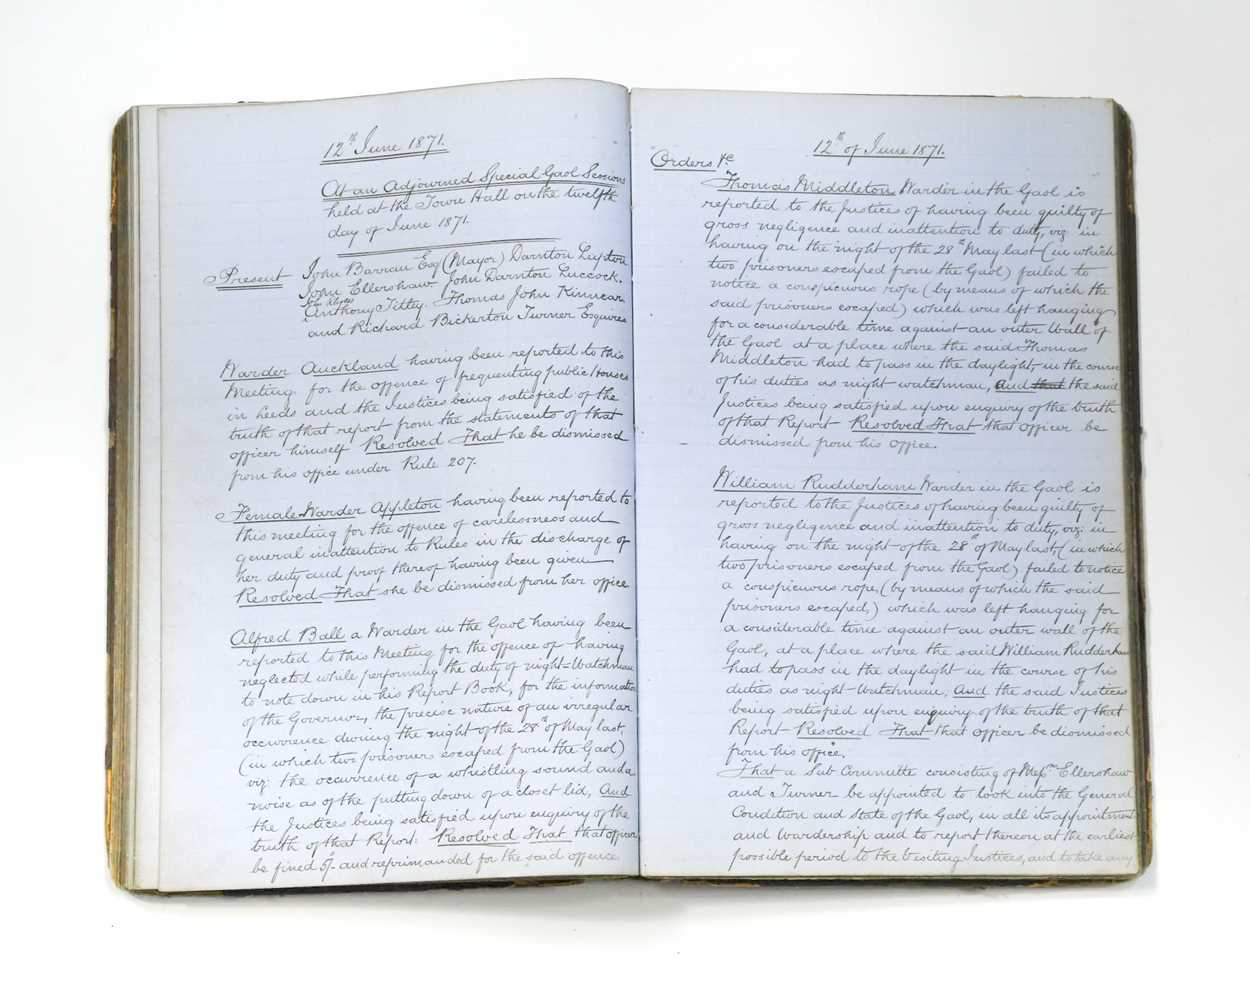 12th June 1871.
At an Adjourned Special Gaol Sessions
held at the Town Hall on the twelfth
day of June 1871.
Present John Barran Esq (Mayor) Darnton Lupton
John Ellershaw John Darnton Luccock.
Anthony Titley. Thomas John Kinnear
and Richard Bickerton Turner Esquires
Warder Auckland having been reported to this
Meeting for the offence of frequenting public Houses
in Leeds and the Justices being satisfied of the
truth of that report from the statements of that
officer himself Resolved That he be dismissed
from his office under Rule 207.
Female Warder Appleton having been reported to
this meeting for the offence of carelessness and
general inattention to Rules in the discharge of
her duty and proof thereof having been given
Resolved That she be dismissed from her office
Alfred Ball a Warder in the Gaol having been
reported to this Meeting for the offence of having
neglected while performing the duty of night-Watchman
to note down in his Report Book, for the information
of the Governor, the precise nature of an irregular
occurrence during the night of the 28th of May last,
(in which two prisoners escaped from the Gaol)
viz: the occurrence of a whistling sound and a
noise as of the putting down of a closet lid, And
the Justices being satisfied upon enquiry of the
truth of that Report: Resolved That that officer
be fined 5/- and reprimanded for the said offence
12th of June 1871.
Orders &c
Thomas Middleton Warder in the Gaol is
reported to the Justices of having been guilty of
gross negligence and inattention to duty, viz in
having on the night of the 28th May last (in which
two prisoners escaped from the Gaol) failed to
notice a conspicuous rope (by means of which the
said prisoners escaped) which was left hanging
for a considerable time against an outer Wall of
the Gaol at a place where the said Thomas
Middleton had to pass in the daylight, in the course
of his duties as night watchman, and that the said
Justices being satisfied upon enquiry of the truth
of that Report Resolved That that officer be
dismissed from his office.
William Rudderham Warder in the Gaol is
reported to the Justices of having been guilty of
gross negligence and inattention to duty, viz: in
having on the night of the 28th of May last, (in which
two prisoners escaped from the Gaol) failed to notice
a conspicuous rope, (by means of which the said
prisoners escaped,) which was left hanging for
a considerable time against an outer wall of the
Gaol, at a place where the said William Rudderham
had to pass in the daylight in the course of his
duties as night-Watchman, And the said Justices
being satisfied upon enquiry of the truth of that
Report Resolved That that officer be dismissed
from his office.
That a Sub Committe consisting of Messrs Ellershaw
and Turner be appointed to look into the General
Condition and State of the Gaol, in all its appointments
and Wardership and to report thereon at the earliest
possible period to the Visiting Justices, and to take any